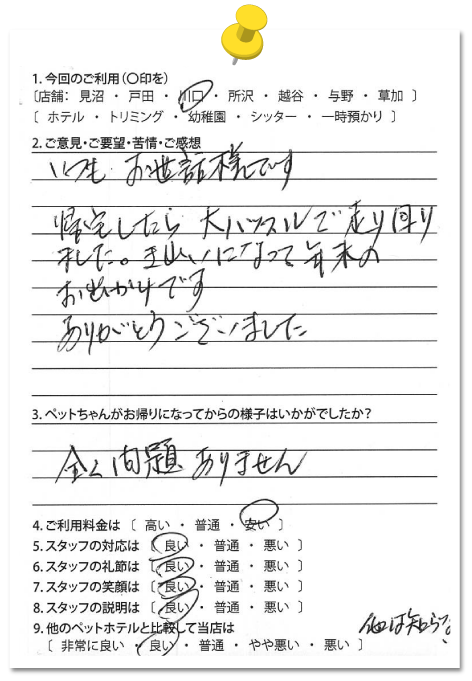 1.今回のご利用(〇印を)
〔店舗: 見沼 ・ 戸田 ・ 川口 ・ 所沢 ・ 越谷 ・ 与野 ・ 草加 〕
〔 ホテル ・ トリミング ・ 幼稚園 ・ シッター ・ 一時預かり 〕
2.ご意見・ご要望・苦情・ご感想
いつも お世話様です
帰宅したら 大ハッスルで走り回り
ました。 になって 年末の
お出かけです
ありがとうございました
3.ペットちゃんがお帰りになってからの様子はいかがでしたか?
全く問題ありません
4.ご利用料金は 〔 高い ・ 普通 ・ 安い 〕
5.スタッフの対応は 〔 良い ・ 普通 ・ 悪い 〕
6.スタッフの礼節は 〔 良い ・ 普通 ・ 悪い 〕
7.スタッフの笑顔は 〔 良い ・ 普通 ・ 悪い 〕
8.スタッフの説明は 〔 良い ・ 普通 ・ 悪い 〕
9.他のペットホテルと比較して当店は
他は知らな
〔 非常に良い ・ 良い ・ 普通 ・ やや悪い ・ 悪い 〕